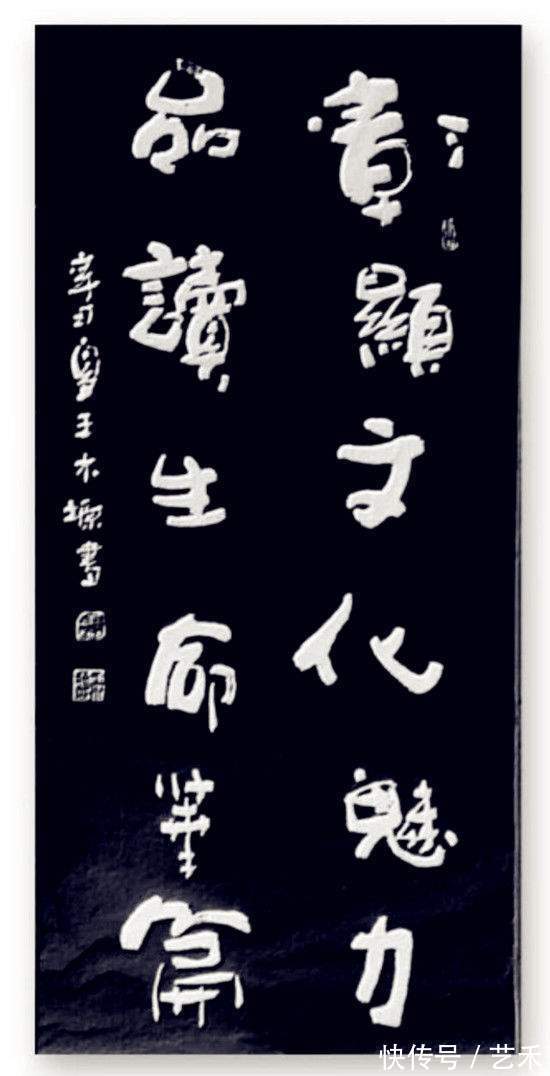 彰顯文化魅力
品讀生命華篇
辛丑夏王木書
快传号 / 艺禾